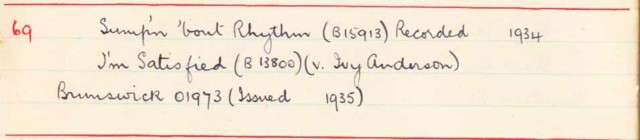 69 Sump'n 'bout Rhythm (B15913) Recorded 1934
I'm Satisfied (B 13800)(v. Ivy Anderson)
Brunswick 01973 (Issued 1935)